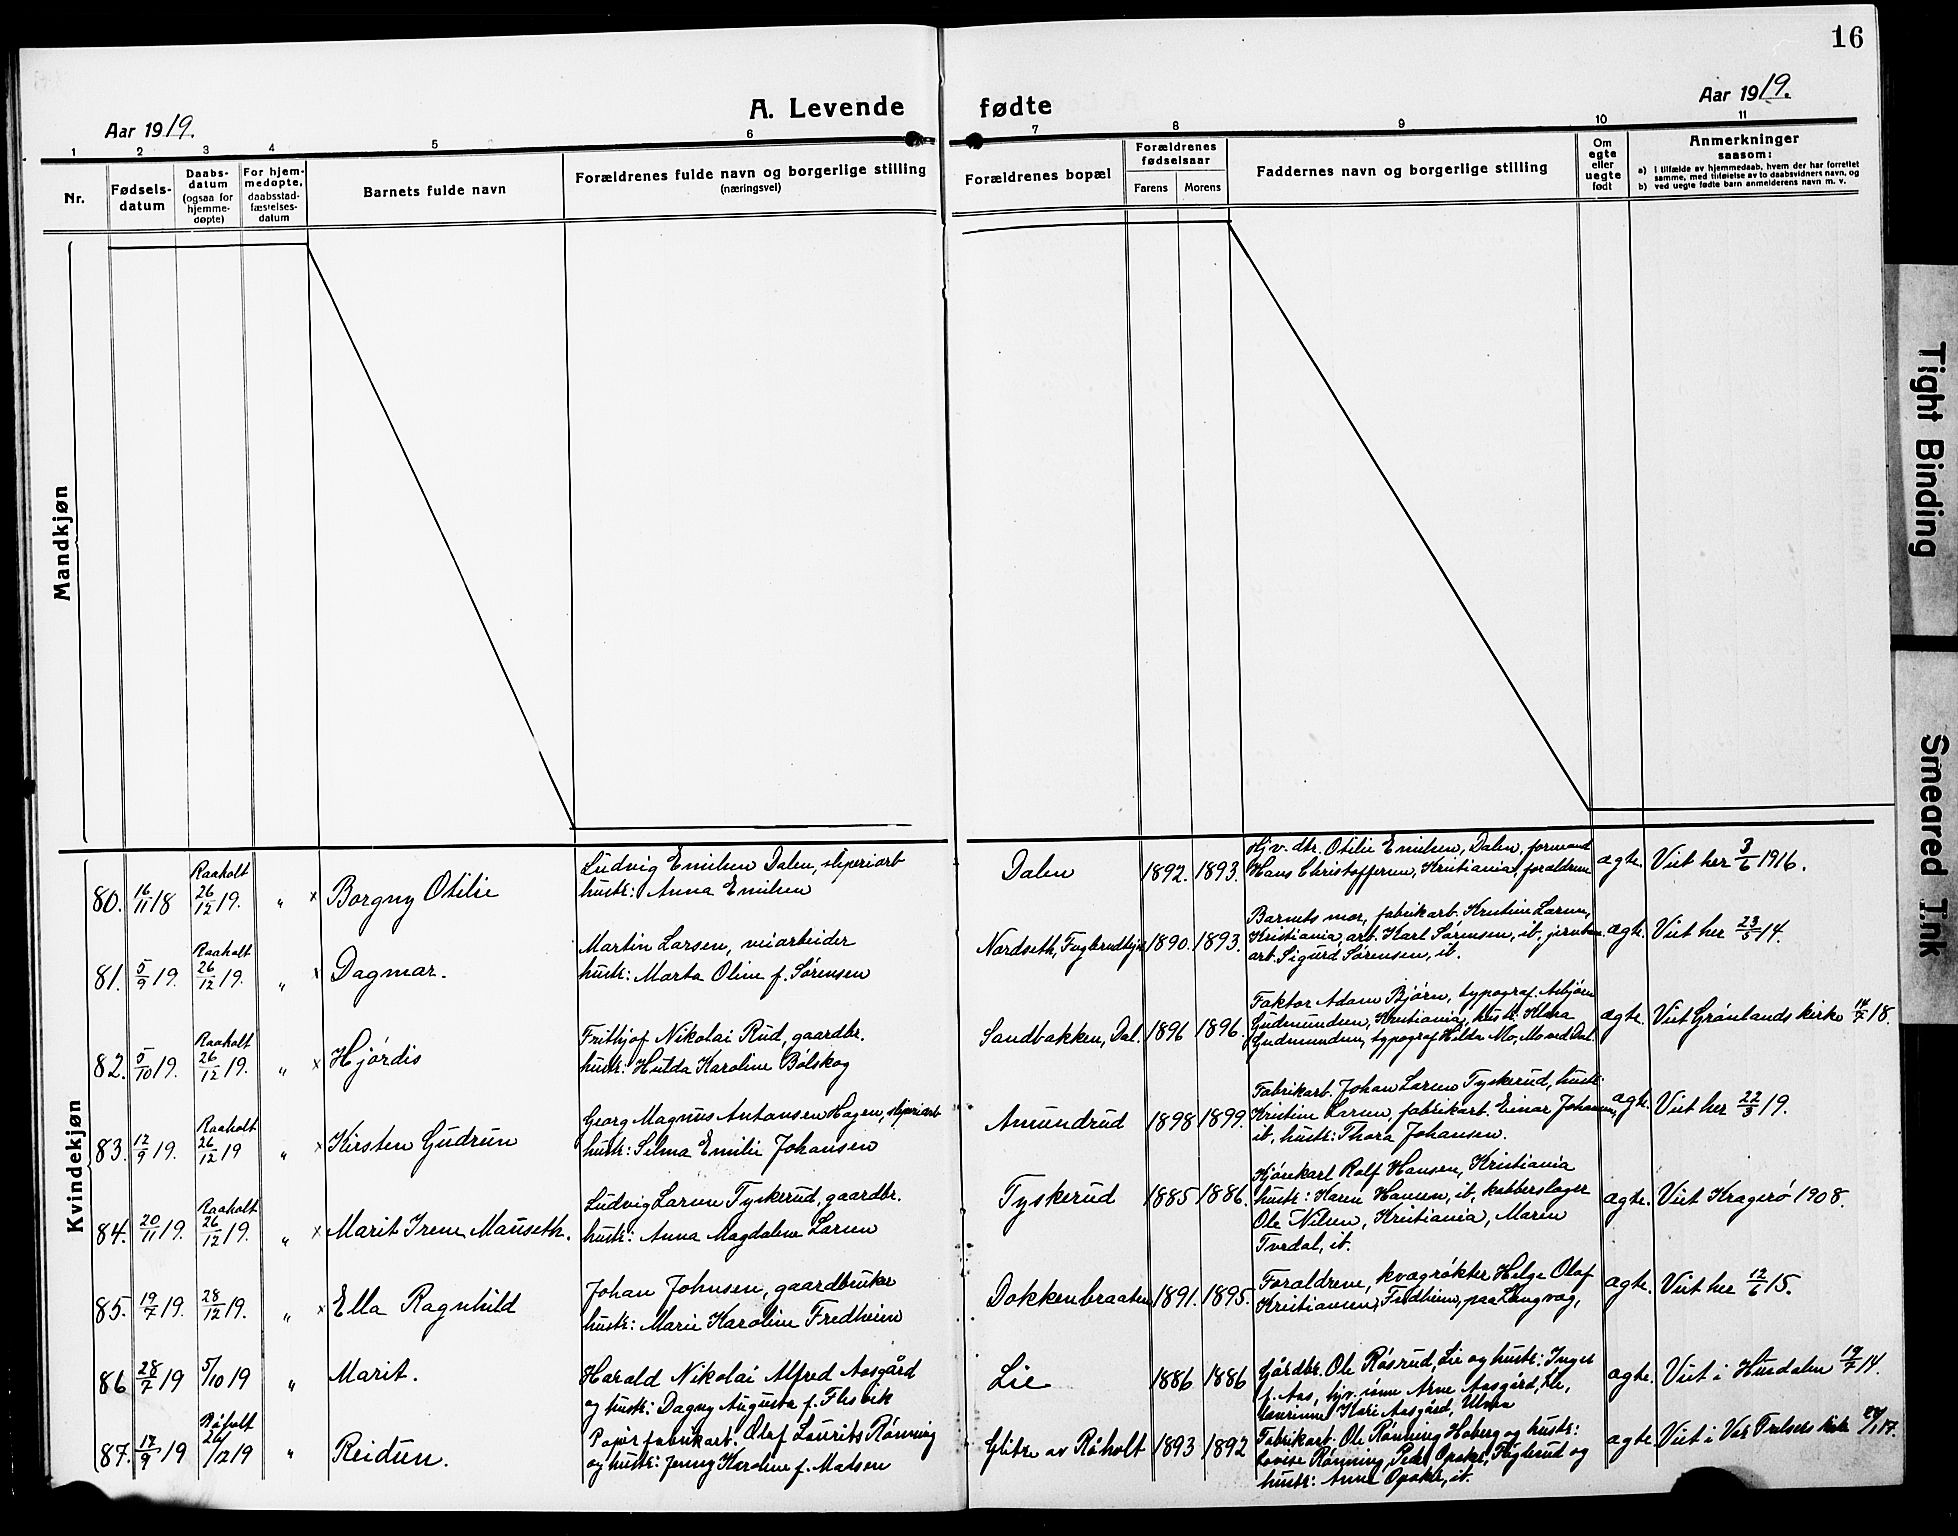 16
A. Levende fødte
Aar 1919.
Aar 1919.
1 2 3 4 5 6 7 8 9 10 11
Nr.
Fødsels-
datum
Daabs-
datum
(ogsaa for
hjemme-
døpte)
For hjem-
medøpte,
daabsstad-
fæstelses-
datum
Barnets fulde navn
Forældrenes fulde navn og borgerlige stilling
(næringsvei)
Forældrenes bopæl
Forældrenes
fødselsaar
Farens
Morens
Faddernes navn og borgerlige stilling
Om
egte
eller
uegte
født
Anmerkninger
saasom:
a) i tilfælde av hjemmedaab, hvem der har forrettet
samme, med tilføielse av to daabsvidners navn, og
b) ved uegte fødte barn anmelderens navn m. v.
Mandkjøn
Kvindekjøn
80. 16/11 18 Raaholt 26/12 19. „ × Borgny Otilie
Ludvig Emilsen Dalen, sliperiarb
hustr: Anna Emilsen
Dalen 1892. 1893.
Hjv. dtr. Otilie Emilsen, Dalen, formand
Hans Christoffersen, Kristiania, forældrene
ægte. Viet her 3/6 1916.
81. 5/9 19. Raaholt 26/12 19. „ × Dagmar.
Martin Larsen, veiarbeider
hustr: Marta Oline f. Sørensen
Nordseth, 1890. 1893.
Barnets mor, fabrikarb. Kristine Larsen,
Kristiania, arb. Karl Sørensen, ib, jernban
arb. Sigurd Sørensen, ib.
ægte. Viet her 23/5 14.
82. 5/10 19. Raaholt 26/12 19. „ × Hjørdis
Frithjof Nikolai Rud, gaardbr.
hustr: Hulda Karoline Bølskog
Sandbakken, Dal. 1896 1896.
Faktor Adam Bjørn, typograf Asbjørn
Gudmundsen, Kristiania, hustr: Klara
Gudmundsen, typograf Hilda Mo, Mo ved Dal.
ægte. Viet Grønlands kirke 14/7 18.
83. 12/9 19. Raaholt 26/12 19 „ × Kirsten Gudrun
Georg Magnus Antonsen Hagen, sliperiarb
hustr: Selma Emilie Johansen
Amundrud 1898 1899.
Fabrikarb. Johan Larsen Tyskerud, hustr:
Kristine Larsen, fabrikarb. Einar Johansen,
ib, hustr: Thora Johansen.
ægte. Viet her 22/3 19.
84. 20/11 19. Raaholt 26/12 19. „ × Marit Irene Mauseth.
Ludvig Larsen Tyskerud, gaardbr.
hustr: Anna Magdalene Larsen
Tyskerud 1885 1886.
Kjørekarl Rolf Hansen, Kristiania
hustr: Karen Hansen, ib, kobberslager
Ole Nilsen, Kristiania, Maren
Tvedal, ib.
ægte. Viet Kragerø 1908.
85. 19/7 19. 28/12 19. „ × Ella Ragnhild
Johan Johnsen, gaardbruker
hustr: Marie Karoline Fredheim
Dokkenbraaten 1891. 1895.
Forældrene, kvægrøkter Helge Olaf
Kristiansen, Fredheim, paa Langvag,
ægte. Viet her 12/6 15.
86 28/7 19 5/10 19 „ Marit.
Harald Nikolai Alfred Aasgård
og hustr: Dagny Augusta f. Flesvik
Lie 1886 1886
Gårdbr. Ole Røsrud, Lie og hustr: Inger
f. Aas, hjv. sønn Arne Aasgård, Lie,
lærerinne Kari Aasgård,
ægte. Viet i Hurdalen 19/7 14.
87. 17/9 19 Råholt 26/12 19 „ Reidun.
Papirfabrikarb. Olaf Laurits Rønning
og hustr: Jenny Karoline f. Madsen
av Råholt 1893 1892
Fabrikarb. Ole Rønning Hoberg og hustr:
Lovise Rønning, Peder Opakr, og
hustr: Anna Opakr, ib.
ægte. Viet i Vår Frelsers kirke
Tight Binding
Smeared Ink